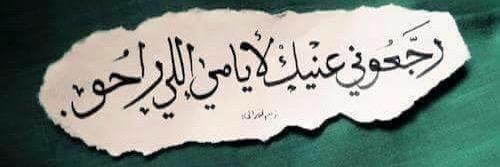 رجّعوني عنيك لأيامي إللي راحو.